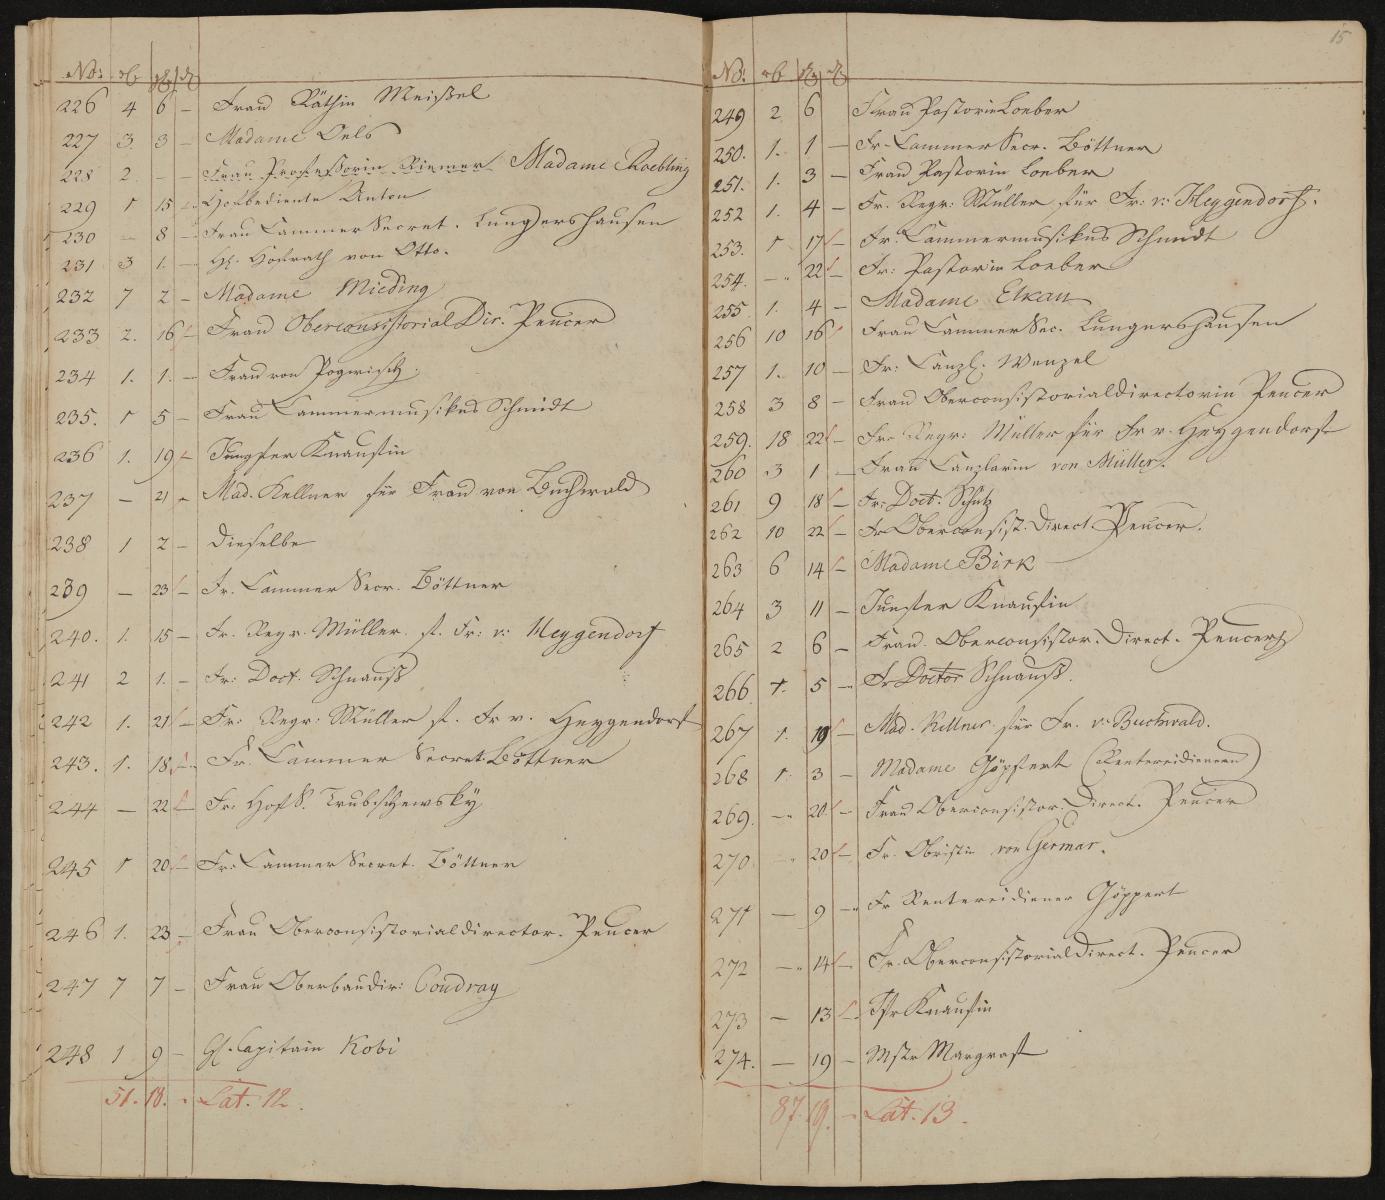 No:
226 4 6 – Frau Räthin Meißel
227 3 3 – Madame Oels
228 2 – – Frau Professorin Riemer Madame Roebling
229 1 15 – Hofbediente Anton
230 – 8 – Frau Cammer Secret. Lungershausen
231 3 1 – H. Hofrath von Otto.
232 7 2 – Madame Mieding
233 2. 16 – Frau Oberconsistorial Dir. Peucer
234 1. 1. – Frau von Pogwisch.
235. 1 5 – Frau Cammermusikus Schmidt
236 1. 19 – Jungfer Knaustin
237 – 21 – Mad. Kellner für Frau von Buchwald
238 1 2 – dieselbe
239 – 23 – Fr. Cammer Secr. Böttner
240. 1. 15 – Fr. Regr. Müller f. Fr: v: Heygendorf
241 2 1. – Fr: Doct. Schnauß
242 1. 21 – Fr: Regr: Müller f. Fr v. Heygendorf
243. 1. 18 – Fr. Cammer Secret: Böttner
244 – 22 – Fr: HofS. Trubschewsky
245 1 20 – Fr: Cammer Secret. Böttner
246 1. 23 – Frau Oberconsistorialdirector. Peucer
247 7 7 – Frau Oberbaudir: Coudray
248 1 9 – H. Capitain Kobi
51. 18. – Lat. 12.
15
No:
249 2 6 Frau Pastorin Loeber
250. 1. 1 – Fr. Cammer Secr. Böttner
251. 1. 3 – Frau Pastorin Loeber
252 1. 4 – Fr. Regr: Müller für Fr: v: Heygendorf.
253. 1 17 – Fr. Cammermusikus Schmidt
254. – 22 – Fr: Pastorin Loeber
255 1. 4 – Madame Elkan
256 10 16 Frau Cammer Sec. Lungershausen
257 1. 10 – Fr: Canzl. Wenzel
258 3 8 – Frau Oberconsistorialdirectorin Peucer
259. 18 22 – Fr. Regr: Müller für Fr v. Heygendorf
260 3 1 – Frau Canzlarin von Müller.
261 9 18 – Fr: Doct. Schütz
262 10 22 – Fr Oberconsist. Direct Peucer.
263 6 14 – Madame Birk
264 3 11 – Jungfer Knaustin
265 2 6 – Frau Oberconsistor. Direct. Peucer
266 1. 5 – Fr Doctor Schnauß.
267 1. 19 – Mad. Kellner für Fr. v: Buchwald.
268 1. 3 – Madame Göpfert (Rentereidienern)
269. – 20 – Frau Oberconsistor. Direct. Peucer
270 – 20 – Fr. Obristin von Germar.
271 – 9 – Fr Rentereidiener Göppert
272 – 14 – Fr. Oberconsistorial Direct. Peucer
273 – 13 – Jfr Knaustin
274. – 19 – Mstr Margraf
87. 19. – Lat. 13.